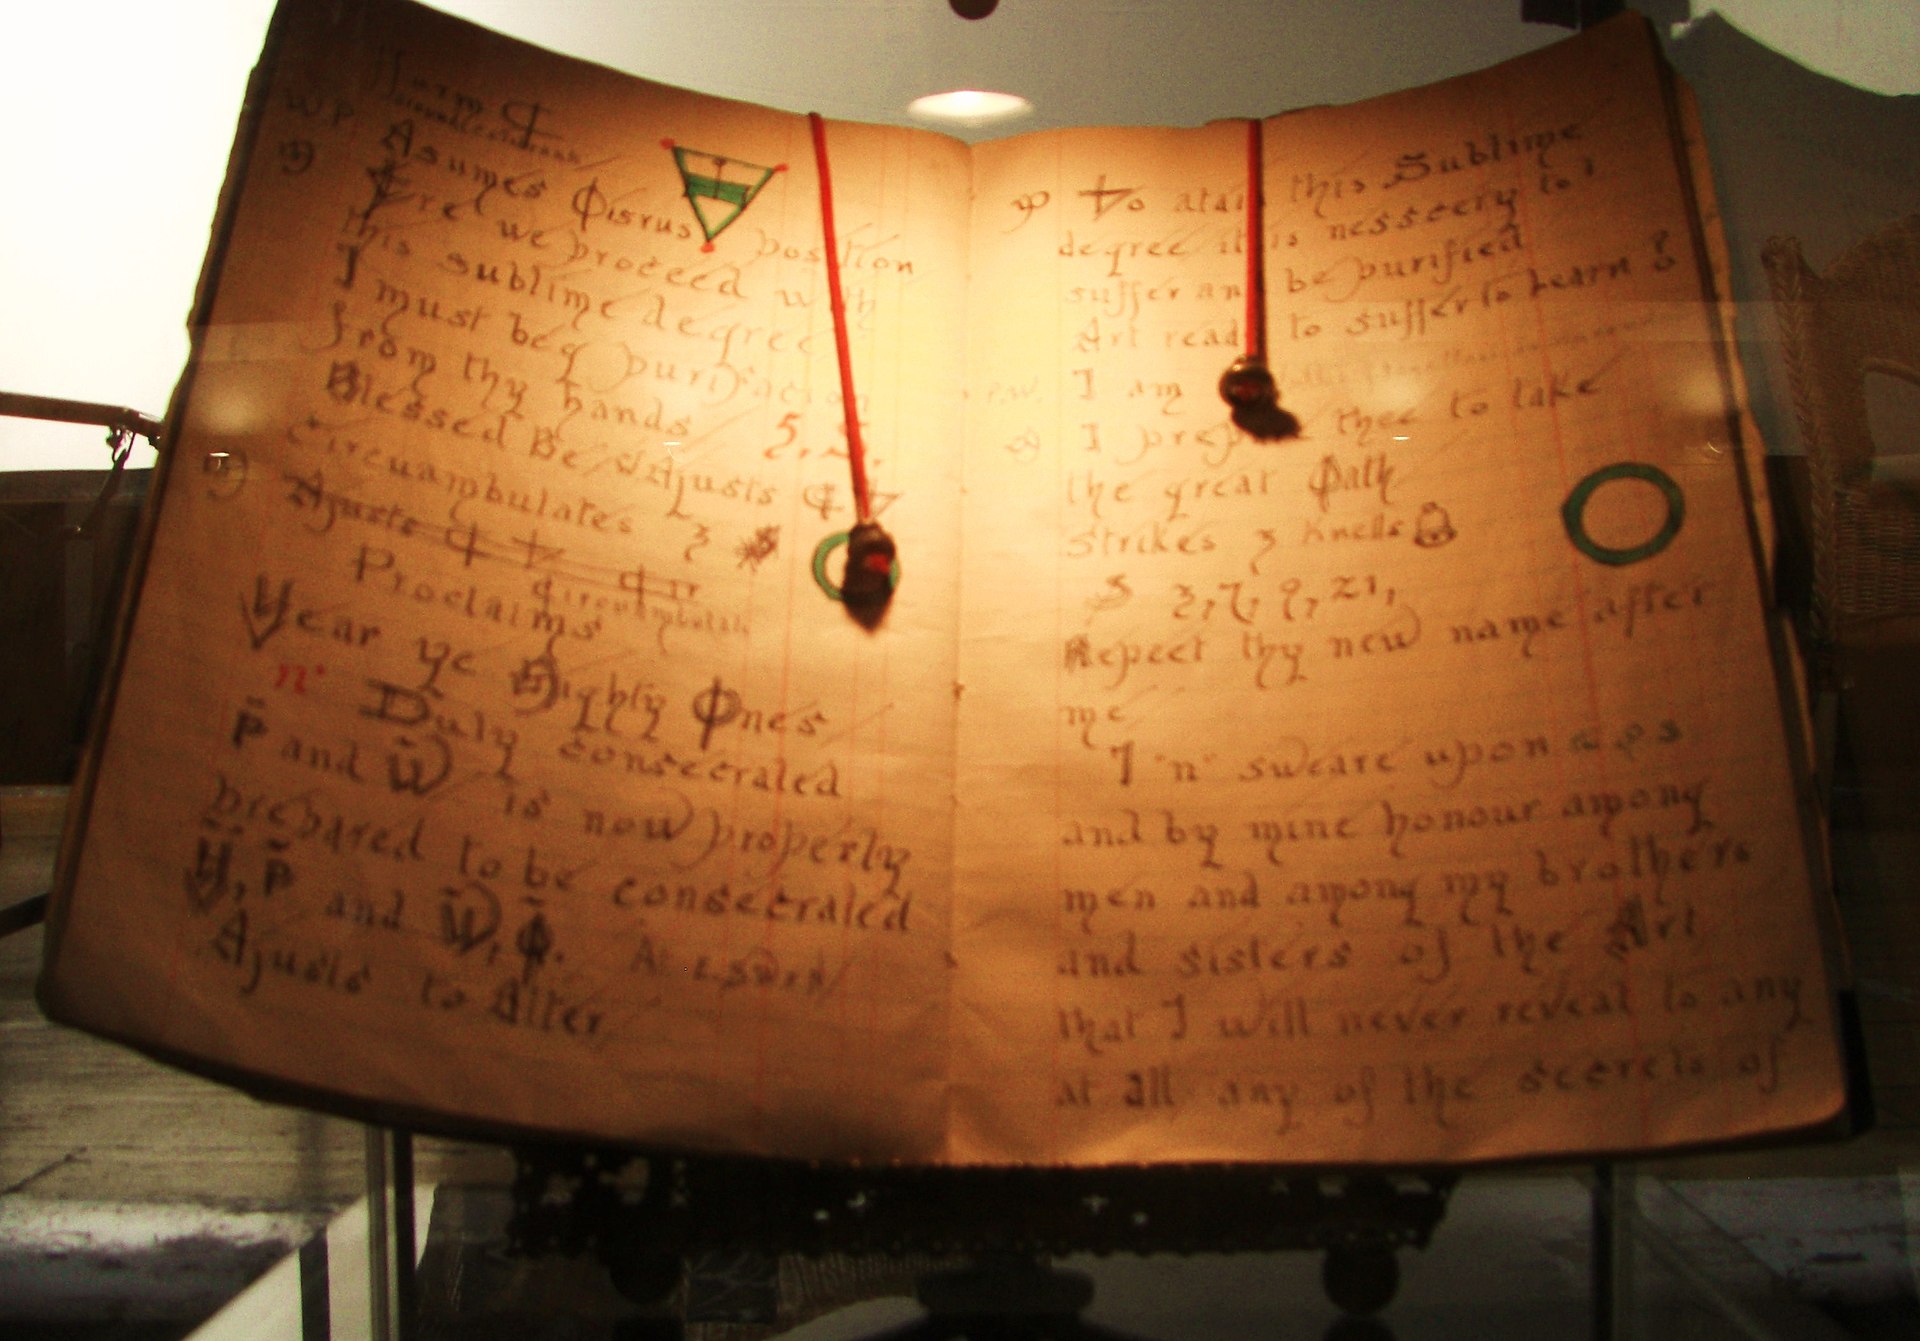 Form
W P Asumes Osirus position
M Ere we proceed with
this sublime degree
I must beg purifacion
from thy hands 5,
Blessed Be Ajusts
Circuambulates 3
Ajusts
Proclaims
Hear ye Mighty Ones
n Duly consecrated
P and W is now properly
prepared to be consecrated
H, P and W,
Ajusts to Alter
To atain this Sublime
degree it is nessecery to
suffer and be purified
Art ready to suffer to Learn ?
I am
I prep thee to take
the great Oath
Strikes 3 Knells
S 3, 7, 9, 21,
Repeet thy new name after
me
I "n" sweare upon
and by mine honour among
men and among my brothers
and sisters of the Art
that I will never reveal to any
at all any of the secrets of